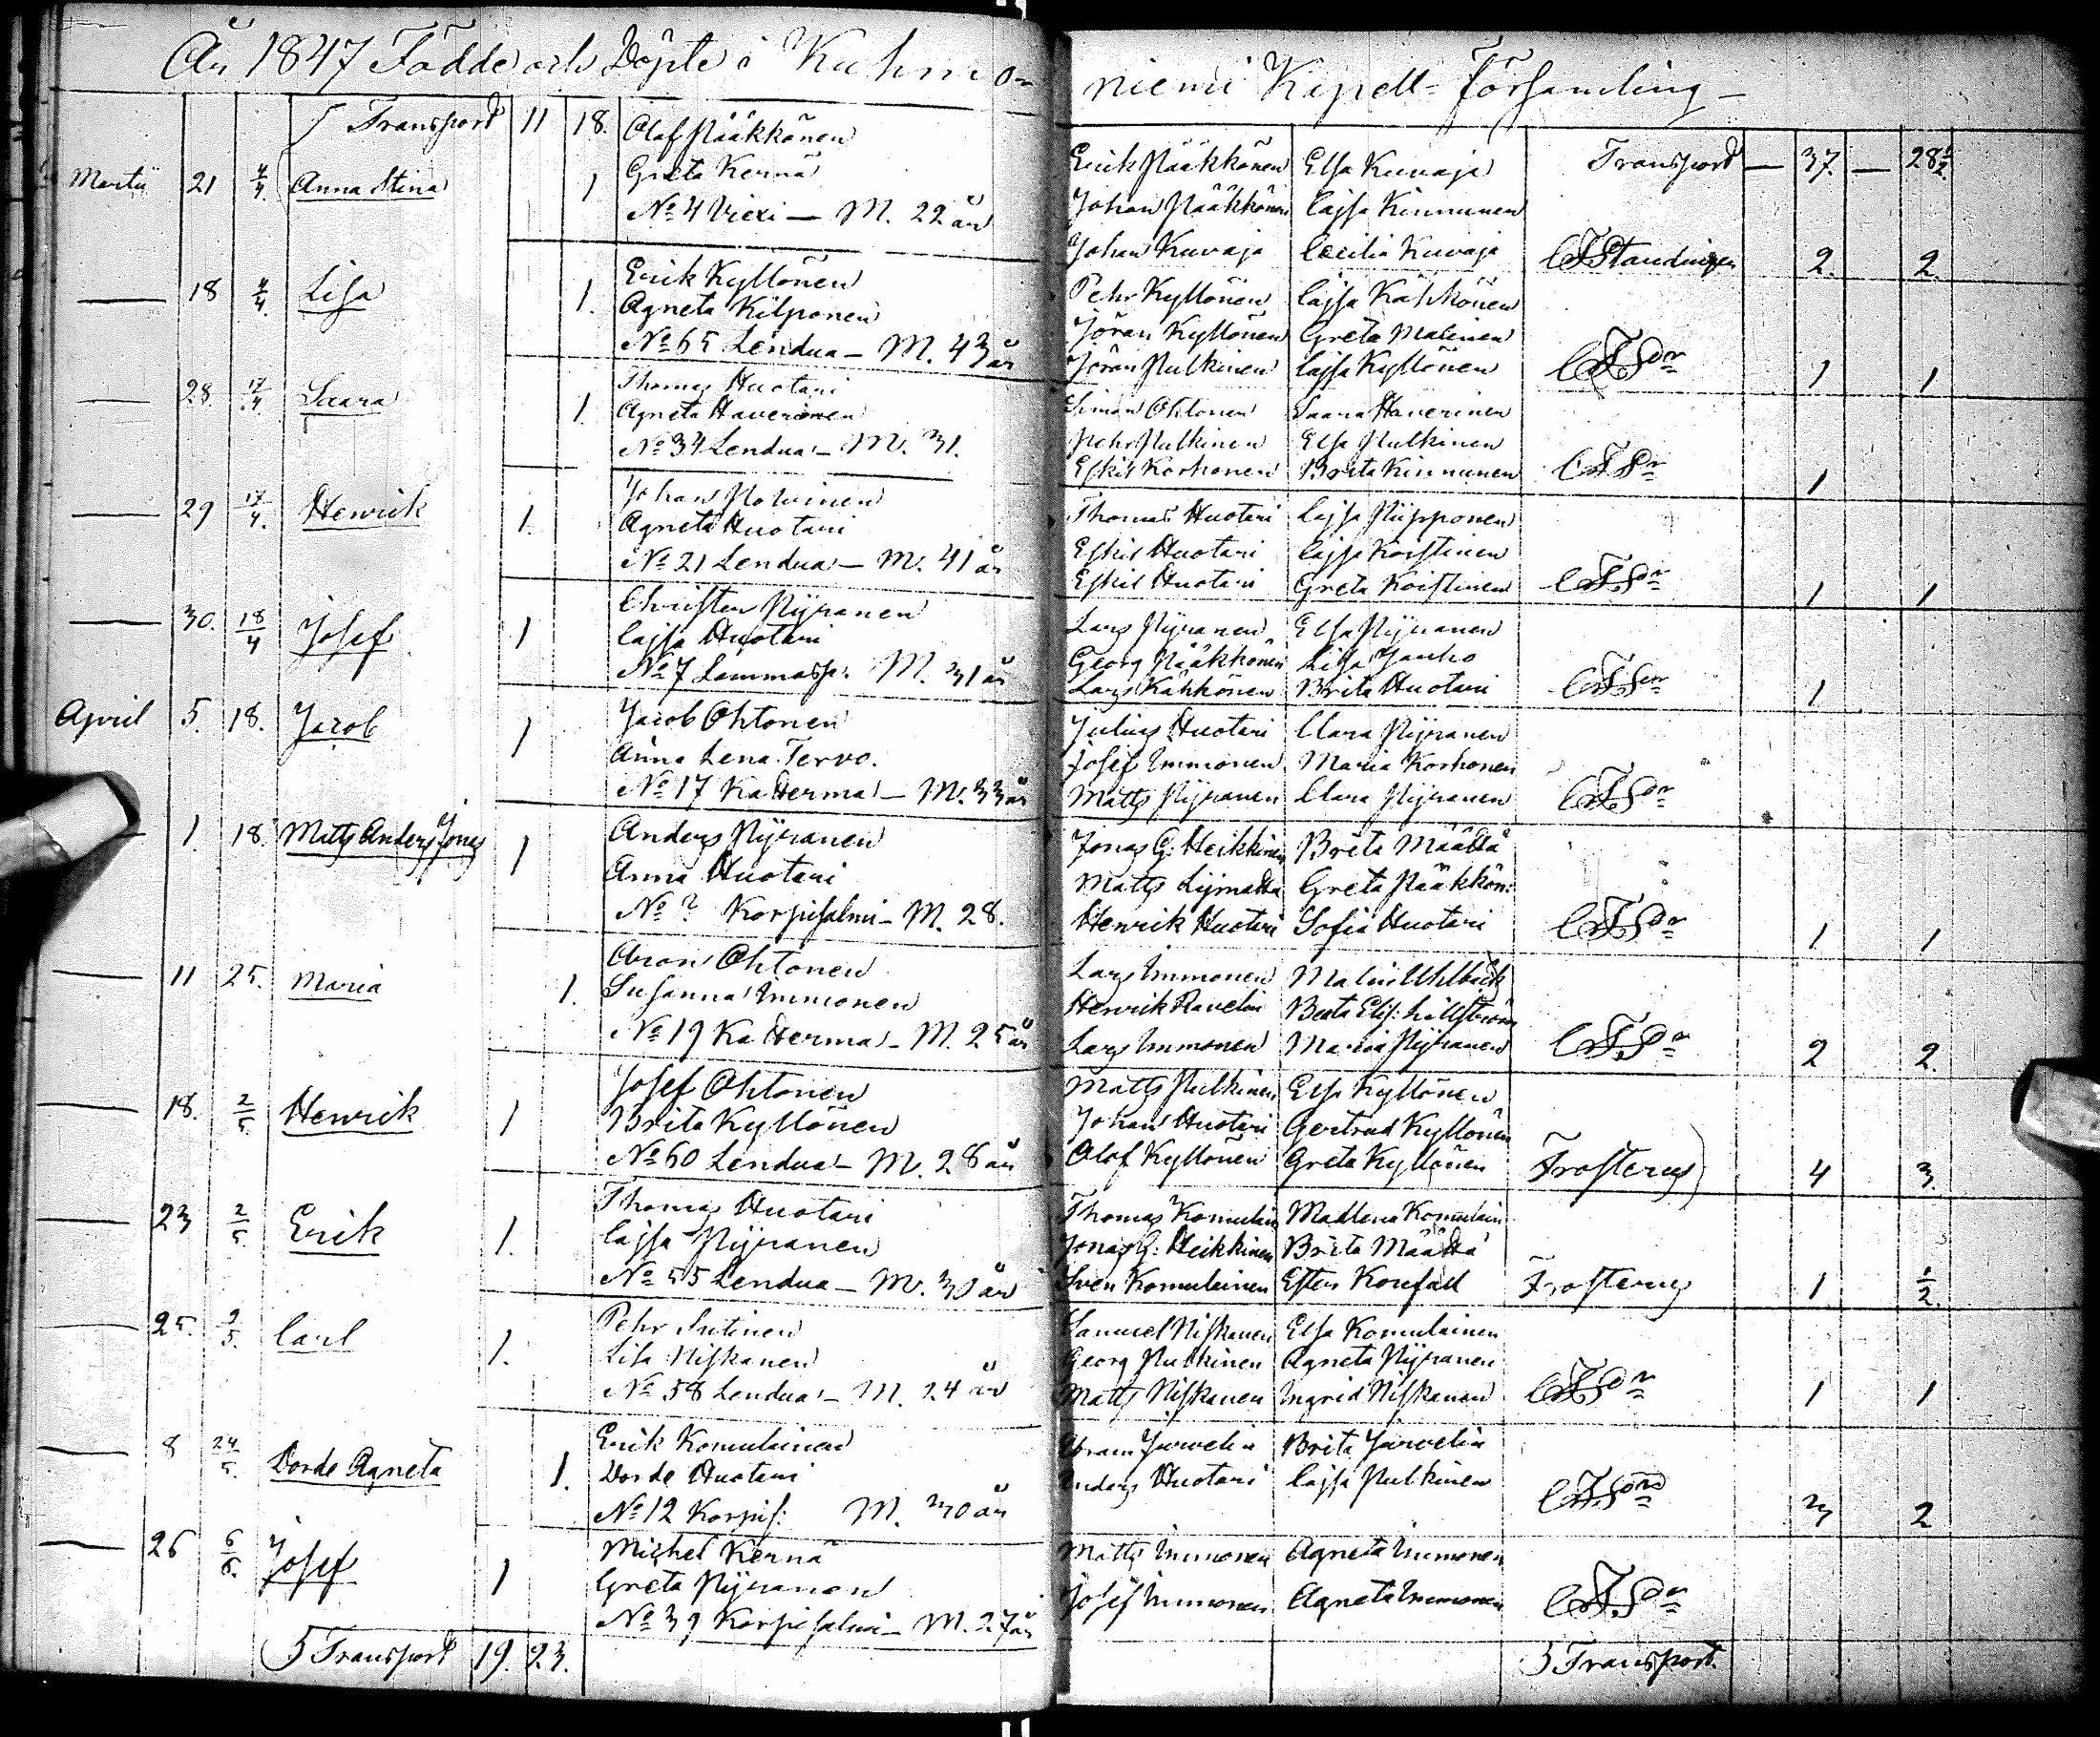 År 1847 Födde och Döpte i Kuhmo-
niemi Kapell-Församling
Transport 11 18. Olof Pääkkönen
Martii 21 4/4 Anna Stina 1 Greta Kernä
No 4 Viexi - M. 22 år
18 4/4. Lisa Erik Kyllönen
1. Agneta Kilponen
No 65 Lendua - M. 43 år
28. 17/4 Saara Thomas Huotari
1. Agneta Haverinen
No 34 Lendua - M. 31.
29 17/4. Henrik Johan
1. Agneta Huotari
No 21 Lendua - M. 41 år
30. 18/4 Josef Christer Pyranen
1 Cajsa Huotari
No 7 Lammasp. M. 31 år
April 5. 18. Jacob Jacob Ohtonen
1 Anna Lena Tervo.
No 17 Katterma - M. 33 år
1. 18. Matts Anders Jonas Anders Pyranen
1 Anna Huotari
No ? Korpisalmi - M. 28.
11 25. Maria Aron Ohtonen
1. Susanna Immonen
No 19 Katterma - M. 25 år
18. 2/5. Henrik Josef Ohtonen
1 Brita Kyllönen
No 60 Lendua - M. 28 år
23 2/5. Erik Thomas Huotari
1. Cajsa Pyranen
No 55 Lendua - M. 30 år
25. 9/5. Carl Pehr Sutinen
1. Lisa Niskanen
No 58 Lendua - M. 24 år
8 24/5. Dorde Agneta Erik Komulainen
1. Dorde Huotari
No 12 Korpis: M. 30 år
26 6/6. Josef Michel Kernä
1 Greta Pyranen
No 39 Korpisalmi - M. 27 år
Transport 19. 23.
Erik Pääkkönen Elsa Kuvaja Transport - 37. - 28 1/2.
Johan Pääkkönen Cajsa Kinnunen
Johan Kuvaja Cæcilia Kuvaja 2. 2.
Pehr Kyllönen Cajsa Kähkönen
Jöran Kyllönen Greta Malinen
Jöran Pulkinen Cajsa Kyllönen 1 1
Simon Ohtonen Saara Haverinen
Pehr Pulkinen Elsa Pulkinen
Eskil Korhonen Brita Kinnunen 1
Thomas Huotari Cajsa Piipponen
Eskil Huotari Cajsa Koistinen
Eskil Huotari Greta Koistinen 1 1
Lars Pyranen Elsa Pyranen
Georg Pääkkönen Lisa Jauho
Lars Kähkönen Brita Huotari 1
Julius Huotari Clara Pyranen
Josef Immonen Maria Korhonen
Matts Pyranen Clara Pyranen
Jonas G: Heikkinen Brita Määttä
Matts Lijmatta Greta Pääkkön:
Henrik Huotari Sofia Huotari 1 1
Lars Immonen Malin Uhlbäck
Henrik Ravelin Beata Elis:
Lars Immonen Maria Pyranen 2 2.
Matts Pulkinen Elsa Kyllönen
Johan Huotari Gertrud Kyllönen
Olof Kyllönen Greta Kyllönen Frosterus 4 3.
Thomas Komulain Madlena Komulain
Jonas G: Heikkinen Brita Määttä
Sven Komulainen Ester Frosterus 1 1/2.
Samuel Niskanen Elsa Komulainen
Georg Pulkinen Agneta Pyranen
Matts Niskanen Ingrid Niskanen 1 1
Abram Jurvelin Brita Jurvelin
Anders Huotari Cajsa Pulkinen 3 2
Matts Immonen Agneta Immonen
Josef Immonen Agneta Immonen
Transport.